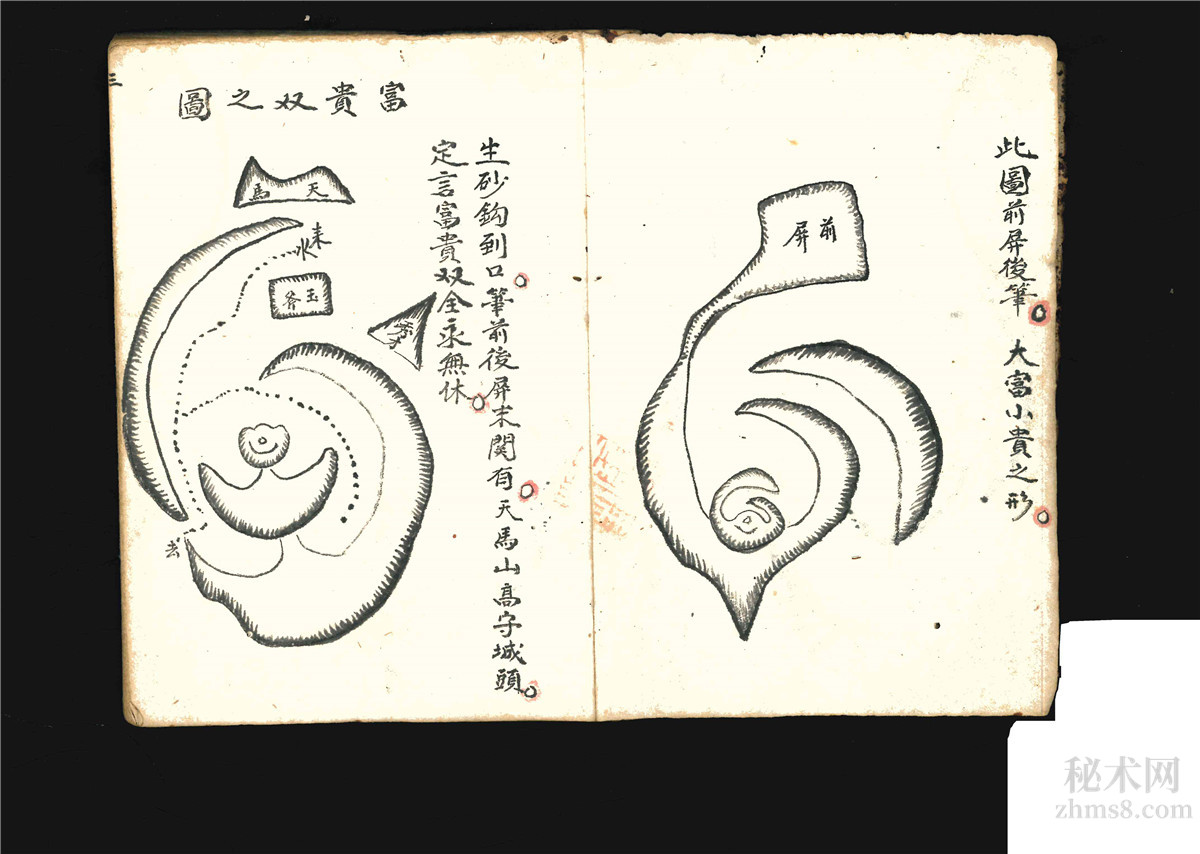 此圖前屏後筆。大富小貴之形。
前屏
富貴双之圖
生砂鈎到口。筆前後屏末関有。天馬山高守城頭。
定言富貴双全永無休。
天馬
来水
玉
去
三
秘术网
zhms8.com